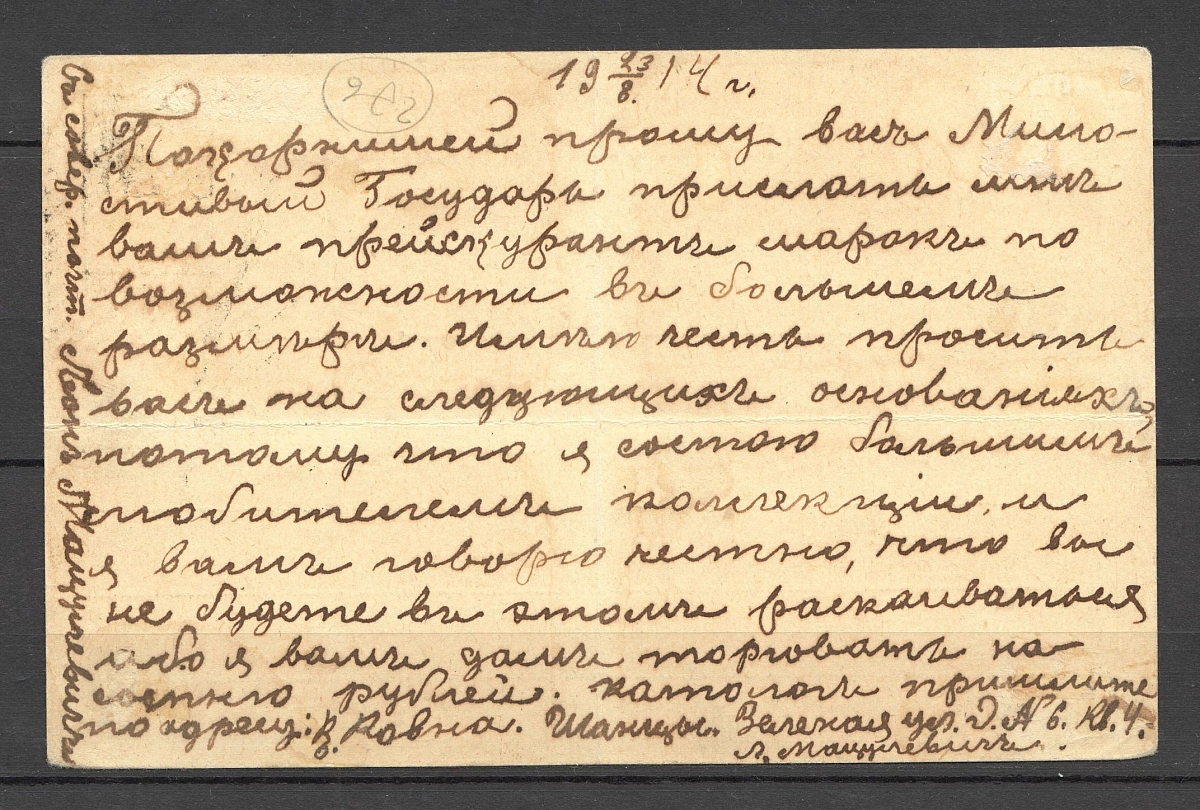 19 23/8. 14 г.
Покоркишей прошу васъ Мило-
стивый Государь прислать мнѣ
вашъ прейскурантъ марокъ по
возможности въ большемъ
размѣрѣ. Имѣю честь просить
васъ на следующихъ основаніяхъ,
потому что я состою большимъ
любителемъ коллекціи, и
я вамъ говорю честно, что вы
не будете въ этомъ раскаиваться
ибо я вамъ дамъ торговать на
сотню рублей. катологъ пришлите
по адресу: г. Ковна. Шанцы. Зеленая ул. д. № 6. Кв. 4.
Л. Мацулевичъ.
Съ совер. почт. Леонъ Мацулевичъ